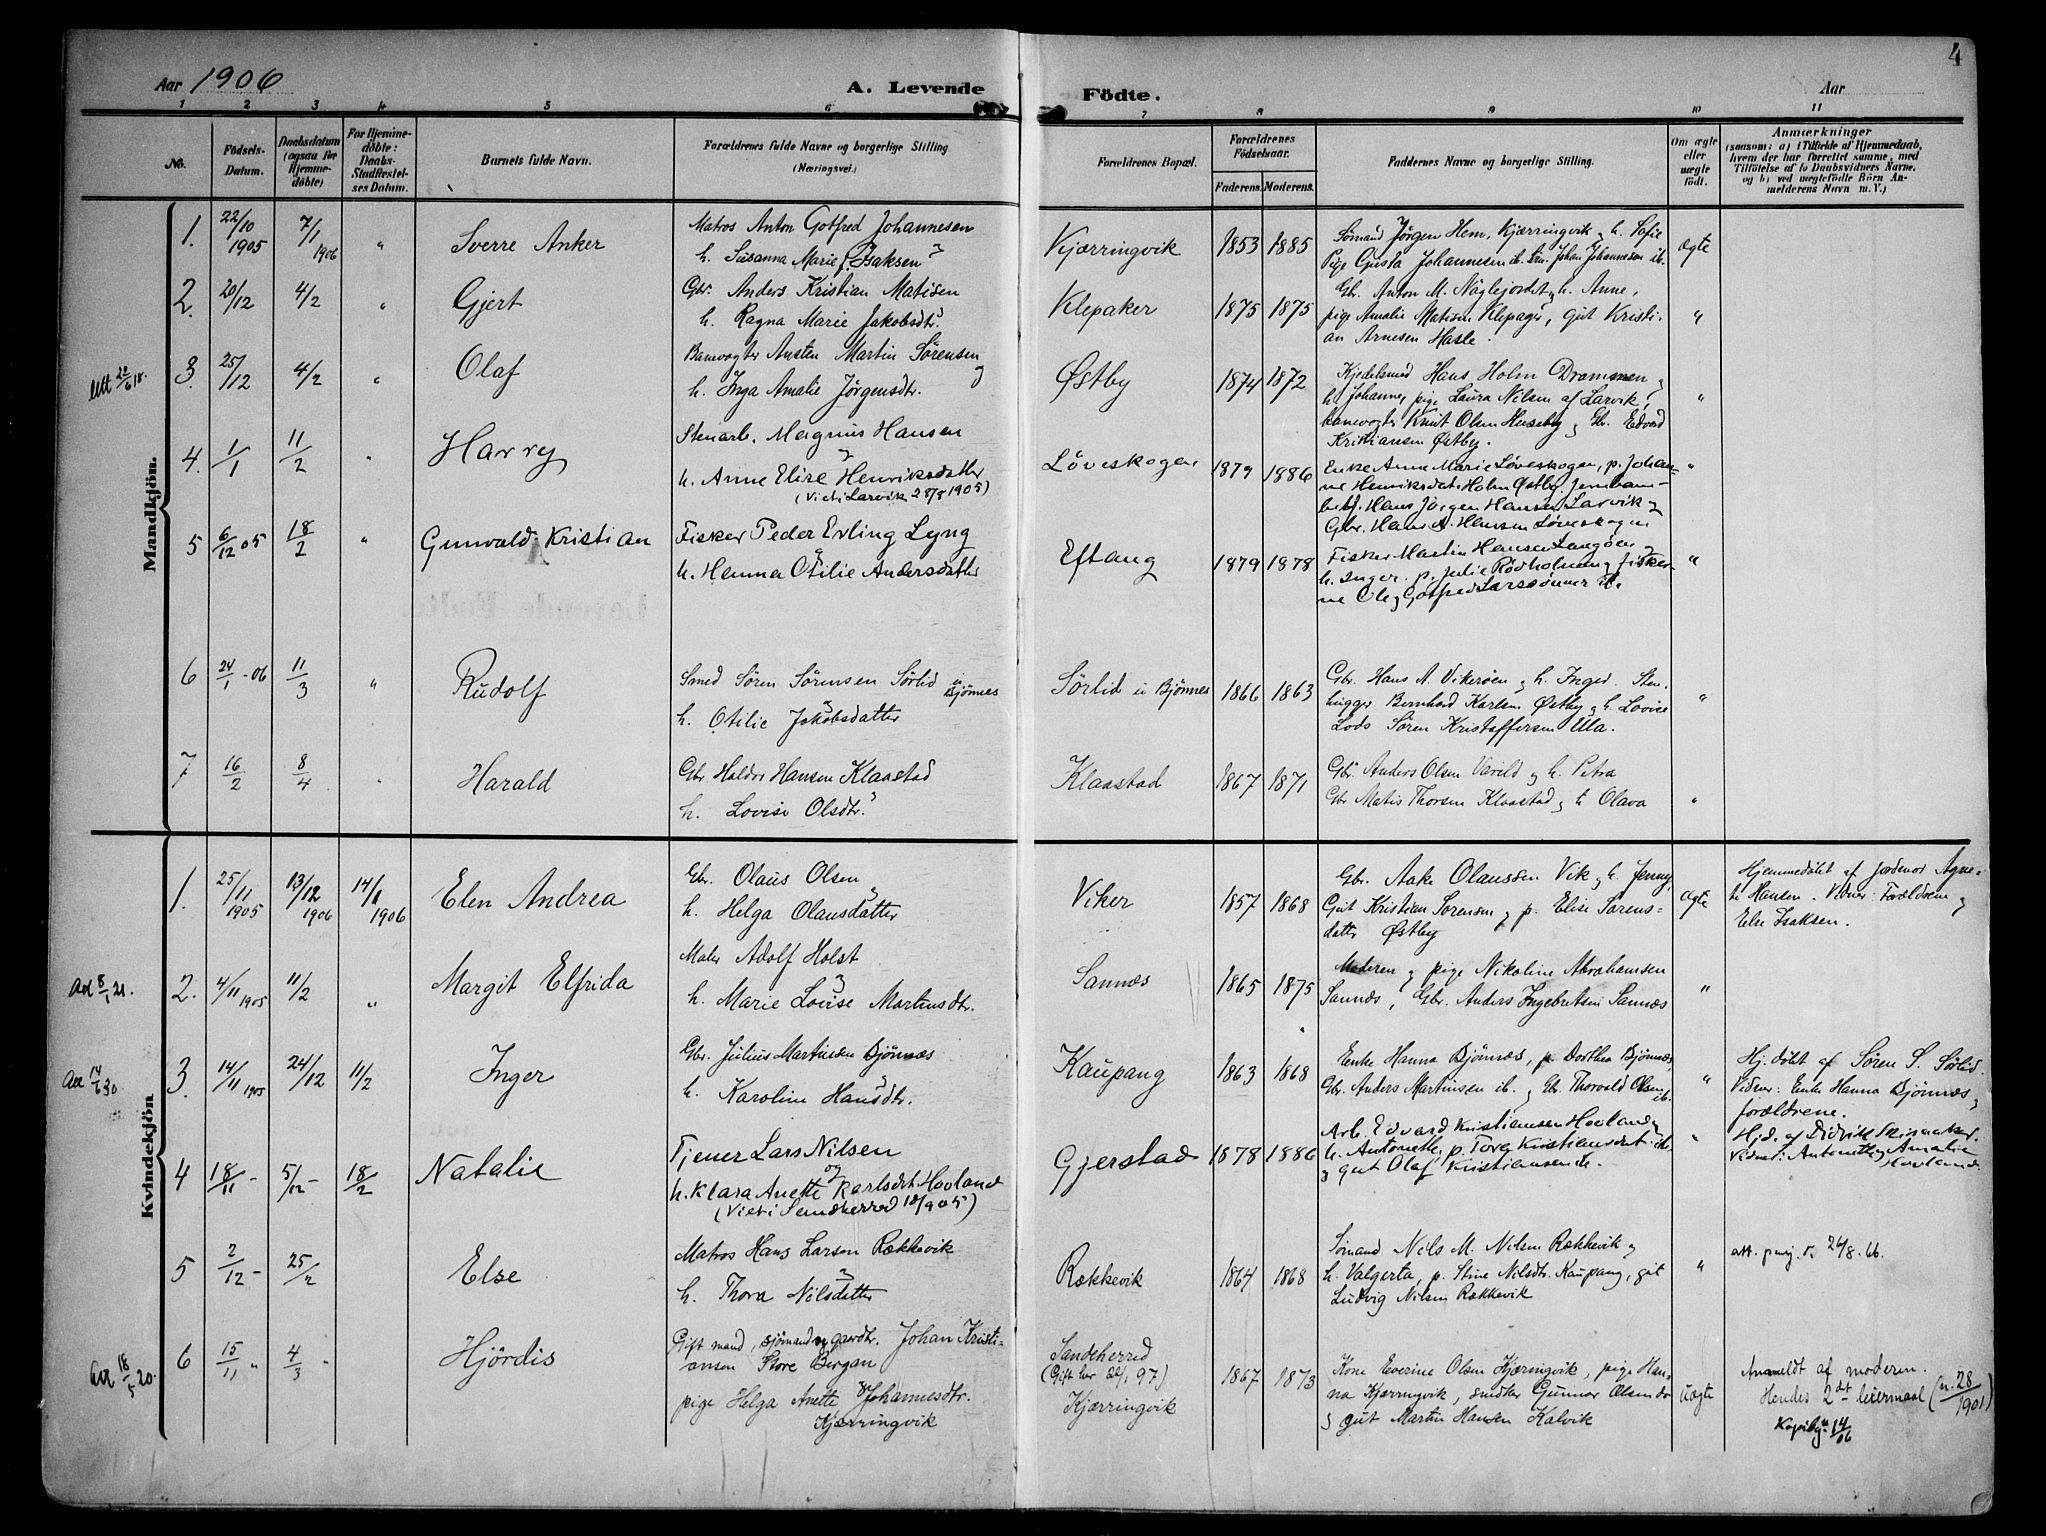 4
Aar 1906
A. Levende
Födte.
Aar
1 2 3 4 5 6 7 8 9 10 11
No.
Födsels-Datum.
Daabsdatum (ogsaa for Hjemmedöbte)
For Hjemmedöbte: Daabs-Stadfæstelses Datum.
Barnets fulde Navn.
Forældrenes fulde Navne og borgerlige Stilling
(Næringsvei.)
Forældrenes Bopæl.
Forældrenes Födselsaar.
Faderens. Moderens.
Faddernes Navne og borgerlige Stilling.
Om ægte eller uægte födt.
Anmærkninger
(saasom: a) i Tilfælde af Hjemmedaab,
hvem der har forrettet samme, med
Tilföielse af to Daabsvidners Navne,
og b) ved uægtefödte Börn Anmelderens Navn m. V.)
Mandkjön.
1. 22/10 1905 7/1 1906 " Sverre Anker
Matros Anton Gotfred Johannesen
h. Susanna Marie f. Isaksen
Kjærringvik 1853 1885
Sømand Jørgen Hem, Kjærringvik og h. Sofie
Pige Gusta Johannesen ib. Sm. Johan Johannesen ib.
ægte
2. 20/12 4/2 " Gjert
Gbr. Anders Kristian Matisen
h. Ragna Marie Jakobsdtr.
Klepaker 1875 1875
Gb. Anton M. Näglejordet og h. Anne,
pige Amalie Matisen Klepager, gut Kristi-
an Arnesen Hasle.
"
att 22/6 18.
3. 25/12 4/2 " Olaf
Banevogter Austen Martin Sørensen
og
h. Inga Amalie Jørgensdtr.
Østby 1874 1872
Kjedelsmed Hans Holm Drammen og
h. Johanne, pige Laura Nilsen af Larvik,
banevogter Knut Olsen Huseby og Gbr. Edvard
Kristiansen Østby.
"
4. 1/1 11/2 " Harry
Stenarb. Magnus Hansen
og
h. Anne Elise Henriksdatter
(Viet i Larvik 28/8 1905)
Løveskogen 1879 1886
Enke Anne Marie Løveskogen, p. Johan-
ne Henriksdat. Holm Østby. Jernban-
betj. Hans Jørgen Hansen Larvik og
Gbr. Hans A. Hansen Løveskogen
"
5 6/12 05 18/2 " Gunvald Kristian
Fisker Peder Erling Lyng
og
h. Hemma Otilie Andersdatter
Eftang 1879 1878
Fisker Martin Hansen Langøen og
h. Inger. p. Julie Rødholmen og fisker-
ne Ole og Gotfred Larssønner ib.
"
6 24/1 - 06 11/3 " Rudolf
Smed Sören Sörensen Sörlid u Bjönnes
h. Otilie Jakobsdatter
Sörlid u Bjönnes 1866 1863
Gbr. Hans A. Vikerøen og h. Inger. Sten-
hugger Bernhard Karlsen Østby og h. Lovise
Lods Sören Kristoffersen Ula.
"
7 16/2 8/4 " Harald
Gbr. Haldor Hansen Klaastad
h. Lovise Olsdtr.
Klaastad 1867 1871
Gbr Anders Olsen Varild og h. Petra
Gbr Matis Thorsen Klaastad og h Olava
"
Kvindekjön
1. 25/11 1905 13/12 1906 14/1 1906 Elen Andrea
Gbr. Olaus Olsen
h. Helga Olausdatter
Viker 1857 1868
Gbr. Aake Olaussen Vik og h. Jenny,
Gut Kristian Sørensen og p. Elise Sørens-
datter Østby
ægte
Hjemmedöbt af jordmor Agne-
te Hansen. Vidner: Forældrene og
Else Isaksen.
Att 5/1 21.
2. 4/11 1905 11/2 " Margit Elfrida
Maler Adolf Holst
h. Marie Louise Martinsdtr.
Sannæs 1865 1875
Moderen og pige Nikoline Abrahamsen
Sannæs, Gbr. Anders Ingebretsen Sannæs
"
Att 14/6 30
3. 14/11 1905 24/12 11/2 Inger
Gbr. Julius Martinsen Bjönnæs
h. Karoline Hansdtr.
Kaupang 1863 1868
Enke Hanna Bjönnæs, p. Dorthea Bjönnæs,
Gbr. Anders Martinsen ib. og Gbr. Thorvald Olsen
ib.
"
Hj. döbt af Søren S. Sørlid.
Vidner: Enke Hanna Bjönnæs og
forældrene.
4 18/11 - 5/12 - 18/2 Natalie
Tjener Lars Nilsen
og
h. Klara Anette Karlsdat. Hovland
(Viet i Sandeherred 905)
Gjerstad 1878 1886
Arb. Edvard Kristiansen Hovland og
h. Antonette, p. Tora Kristiansdat. ib.
og gut Olaf Kristiansen ib.
"
Hjd. af Didrik
Vidner: Antonette og Amalie
Hovland.
5 2/12 - 25/2 Else
Matros Hans Larsen Rækkevik
h. Thora Nilsdatter
Rækkevik 1864 1868
Sømand Nils M. Nilsen Rækkevik og
h. Valgerta, p. Stine Nilsdtr. Kaupang, gut
Ludvig Nilsen Rækkevik
"
att. 26/8. 66.
Att 18/5 20.
6 15/11 " 4/3 " Hjördis
Gift mand, sjömand og gaardbr. Johan Kristi-
ansen Store Bergan
pige Helga Anette Johannesdtr.
Kjærringvik
Sandeherred
(Gift her 22/1 97)
Kjærringvik
1867 1873
Kone Everine Olsen Kjæringvik, pige Han-
na Kjærringvik, snedker Gunnar Olsen do
og gut Martin Hansen Kalvik
uægte
Anmeldt af moderen.
Hendes 2det leiermaal (n. 28/1901)
14/06